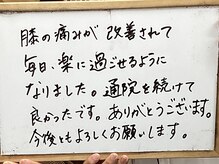 膝の痛みが改善されて
毎日、楽に過ごせるように
なりました。通院を続けて
良かったです。ありがとうございます。
今後ともよろしくお願いします。